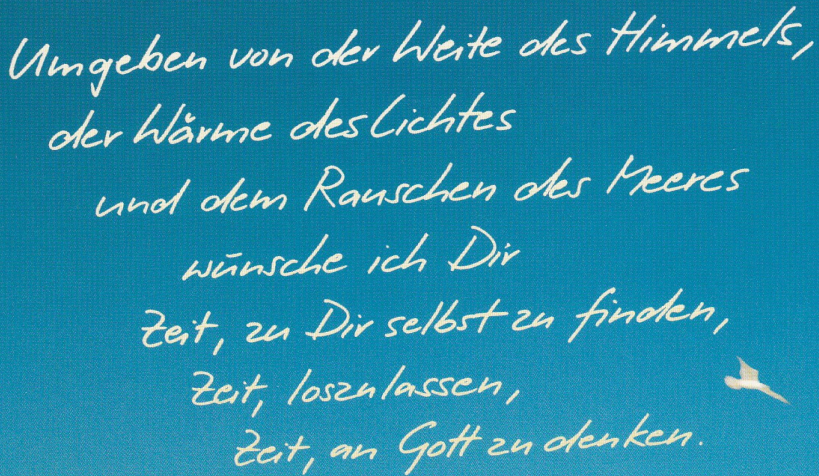 Umgeben von der Weite des Himmels,
der Wärme des Lichtes
und dem Rauschen des Meeres
wünsche ich Dir
Zeit, zu Dir selbst zu finden,
Zeit, loszulassen,
Zeit, an Gott zu denken.